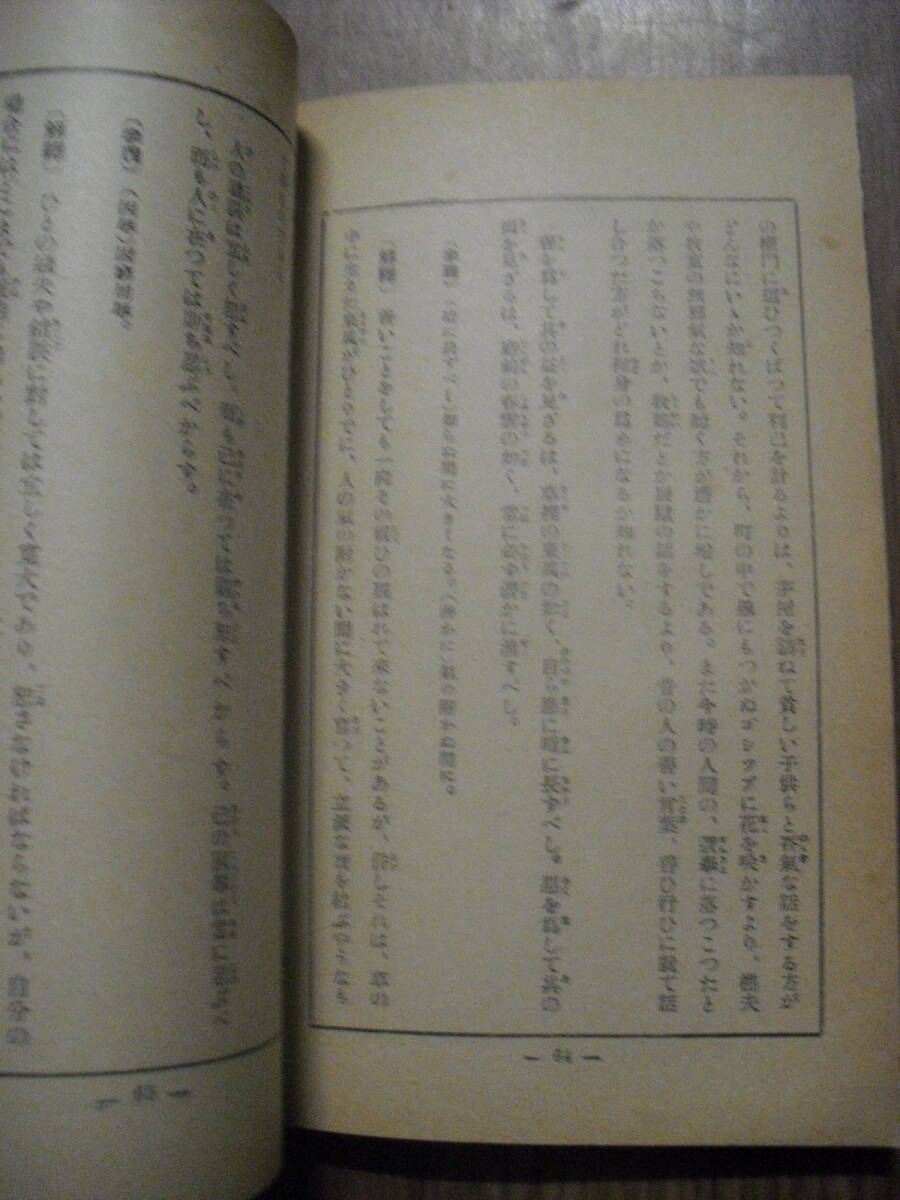 の權門に這ひつくばつて利己を計るよりは、茅屋を訪ねて貧しい子供らと呑氣な話をする方が
どんなにいゝか知れない。それから、町の中で愚にもつかぬゴシップに花を咲かすより、樵夫
や牧童の無邪氣な歌でも聽く方が遙かに増しである。また今時の人間の、選擧に落つこつたと
か落つこちないとか、收賄だとか疑獄の話をするより、昔の人の善い言葉、善ひ行ひに就て話
し合つた方がどれ程身の爲めになるか知れない。
善を爲して其の益を見ざるは、草裡の東瓜の如く、自ら應に暗に長ずべし。惡を爲して其の
損を見ざるは、庭前の春雪の如く、當に必ず潛かに消すべし。
(暗に長ずべし)知らぬ間に大きくなる。(潛かに)氣の附かぬ間に。
〔解釋〕善いことをしても一向その報ひの現はれて來ないことがあるが、併しそれは、草の
中に落ちた東瓜がひとりでに、人の氣の附かない間に大きく育つて、立派な實を結ぶやうなも
— 64 —
人の過誤は宜しく恕すべし、而も己に在つては則ち恕すべからず。己の困辱は當に忍ぶべ
し、而も人に在つては則ち忍ぶべからず。
(困辱)困窮屈辱。
〔解釋〕ひとの過失や錯誤に對しては宜しく寛大であり、恕さなければならないが、自分の
— 65 —